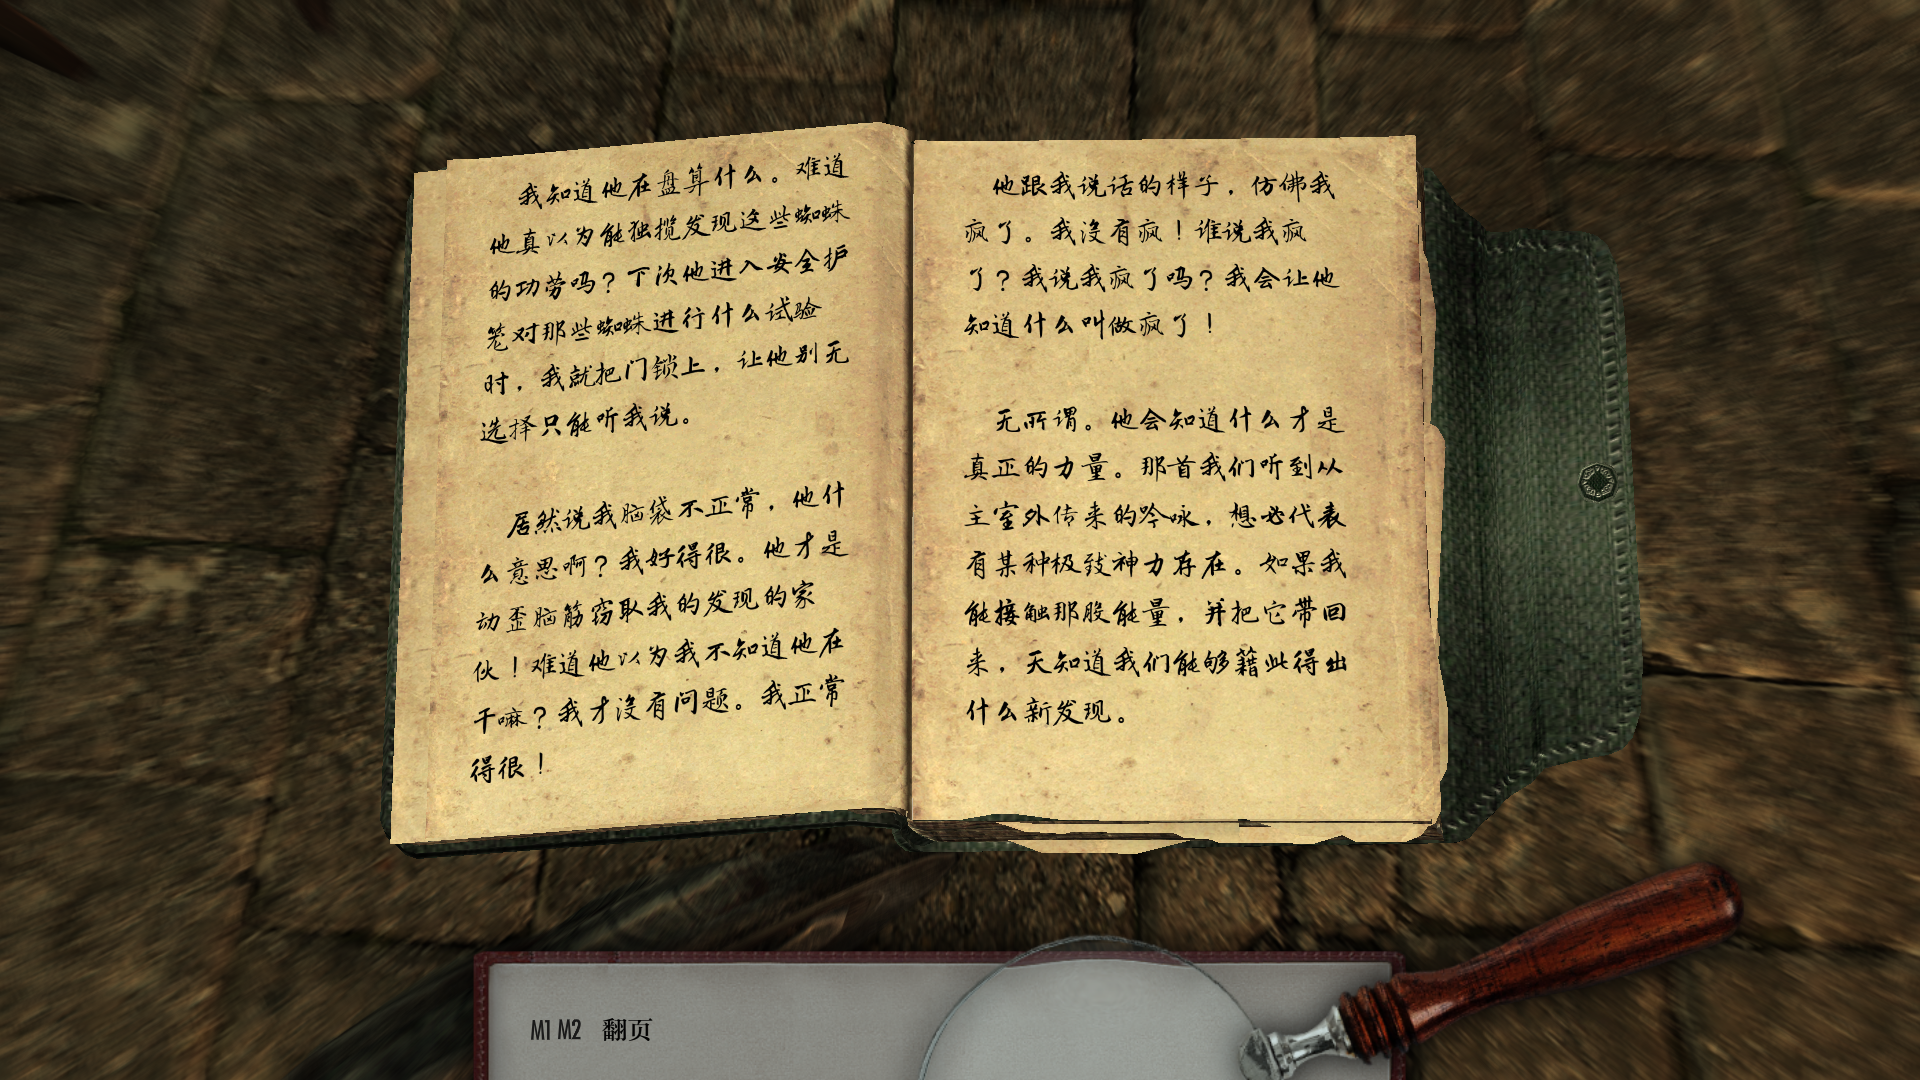 我知道他在盘算什么。难道
他真以为能独揽发现这些蜘蛛
的功劳吗？下次他进入安全护
笼对那些蜘蛛进行什么试验
时，我就把门锁上，让他别无
选择只能听我说。
居然说我脑袋不正常，他什
么意思啊？我好得很。他才是
动歪脑筋窃取我的发现的家
伙！难道他以为我不知道他在
干嘛？我才没有问题。我正常
得很！
他跟我说话的样子，仿佛我
疯了。我没有疯！谁说我疯
了？我说我疯了吗？我会让他
知道什么叫做疯了！
无所谓。他会知道什么才是
真正的力量。那首我们听到从
主室外传来的吟咏，想必代表
有某种极致神力存在。如果我
能接触那股能量，并把它带回
来，天知道我们能够籍此得出
什么新发现。
M1 M2 翻页